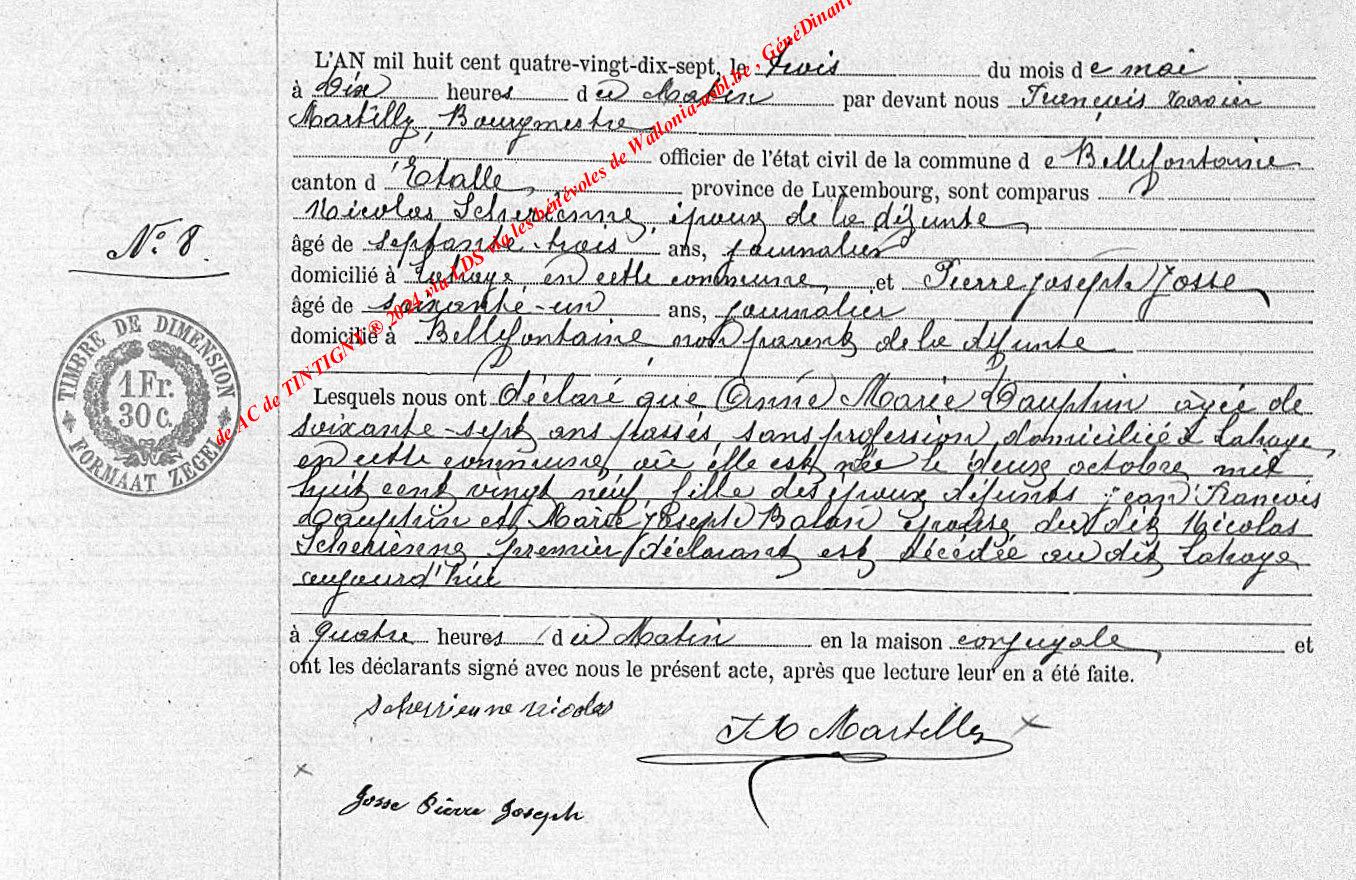 L'AN mil huit cent quatre-vingt-dix-sept, le trois du mois de mai
à Dix heures du Matin par devant nous François Xavier
Martilly, Bourgmestre
officier de l'état civil de la commune de Bellefontaine
canton d'Etalle, province de Luxembourg, sont comparus
Nicolas Scherienne, époux de la défunte,
N° 8.
âgé de septante-trois ans, journalier
domicilié à Lahage, en cette commune, et Pierre Joseph Josse,
âgé de soixante-un ans, journalier
domicilié à Bellefontaine non parent de la défunte
TIMBRE DE DIMENSION
1 Fr.
30 c.
FORMAAT ZEGEL
Lesquels nous ont déclaré que Anne Marie Dauphin agée de
soixante-sept ans passés, sans profession, domiciliée à Lahage,
en cette commune, où elle est née le deux octobre mil
huit cent vingt neuf, fille des époux défunts Jean François
Dauphin et Marie Joseph Balon épouse du dit Nicolas
Scherienne premier déclarant est décédée au dit Lahage
aujourd'hui
à quatre heures du Matin en la maison conjugale, et
ont les déclarants signé avec nous le présent acte, après que lecture leur en a été faite.
Scherrienne Nicolas
FX Martilly
Josse Pierre Joseph
de AC de TINTIGNY ® 2024 via LDS via les bénévoles de Wallonia-asbl.be, GénéDinant